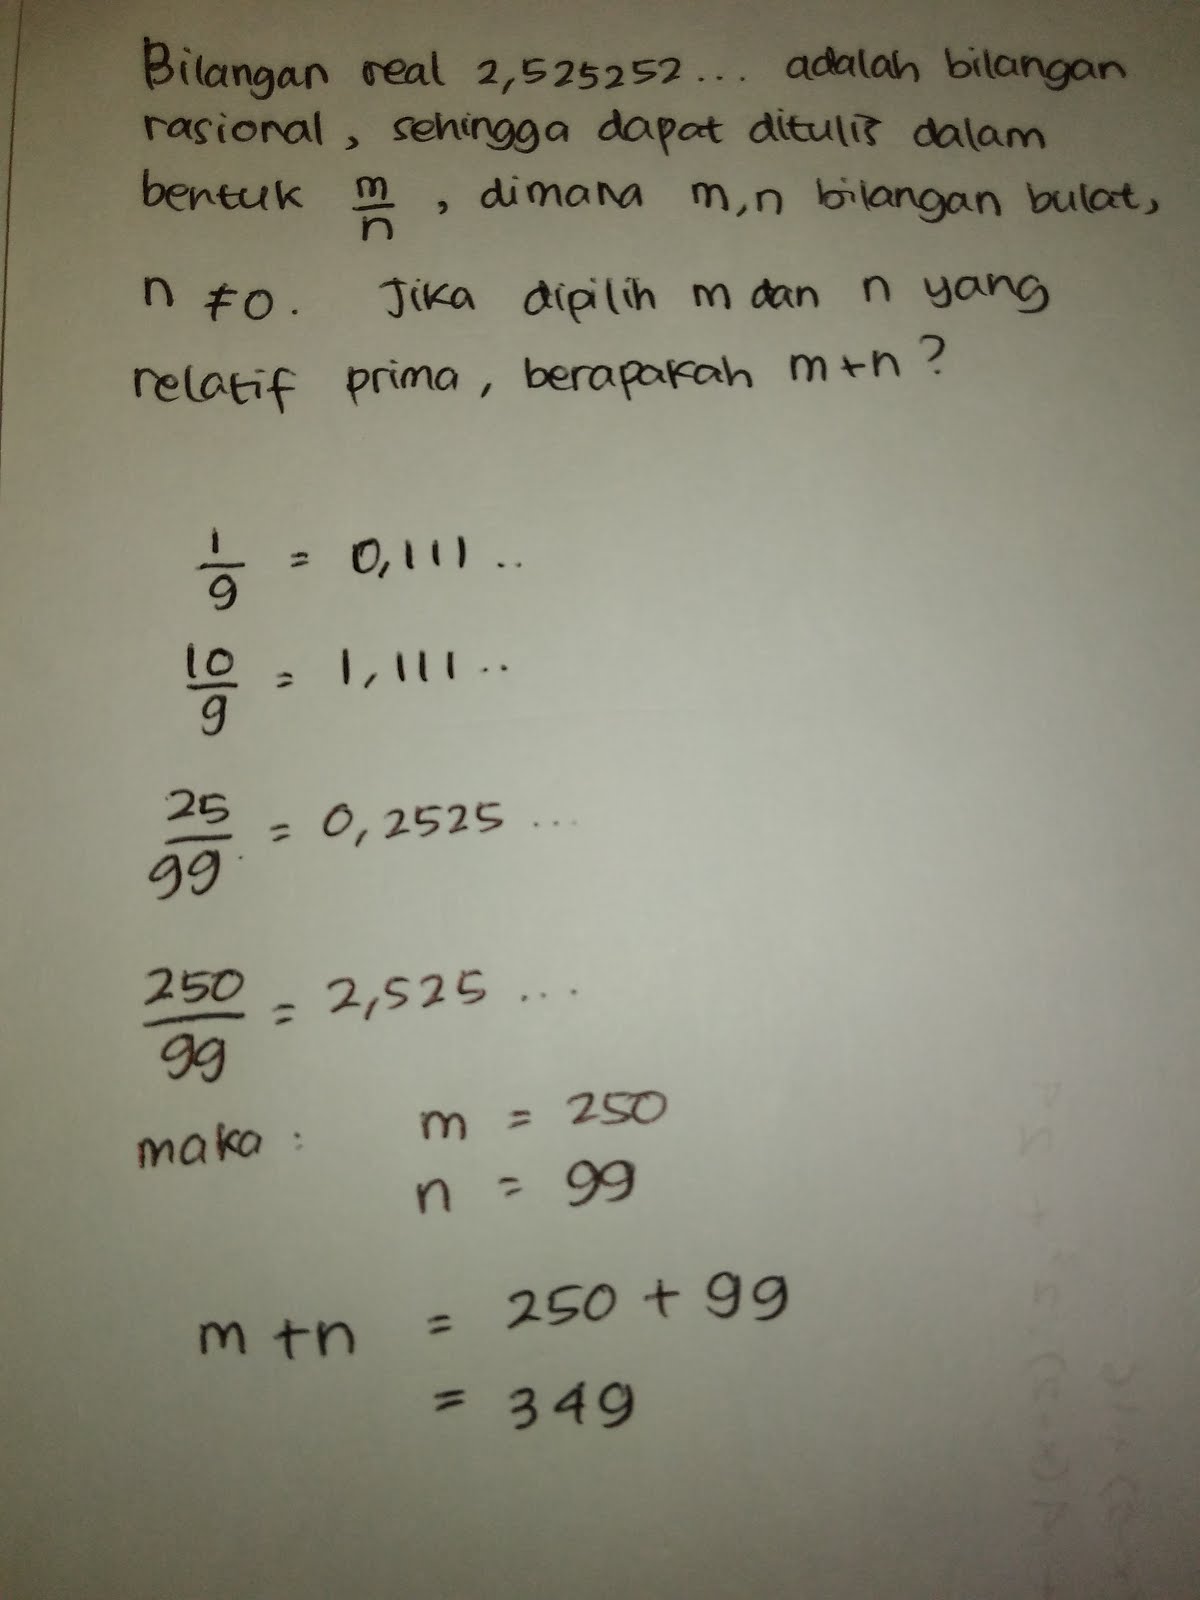 Bilangan real 2,525252... adalah bilangan
rasional, sehingga dapat ditulis dalam
bentuk m/n, dimana m,n bilangan bulat,
n ≠ 0. Jika dipilih m dan n yang
relatif prima, berapakah m+n?
1/9 = 0,111..
10/9 = 1,111..
25/99 = 0,2525...
250/99 = 2,525...
maka: m = 250
n = 99
m+n = 250 + 99
= 349